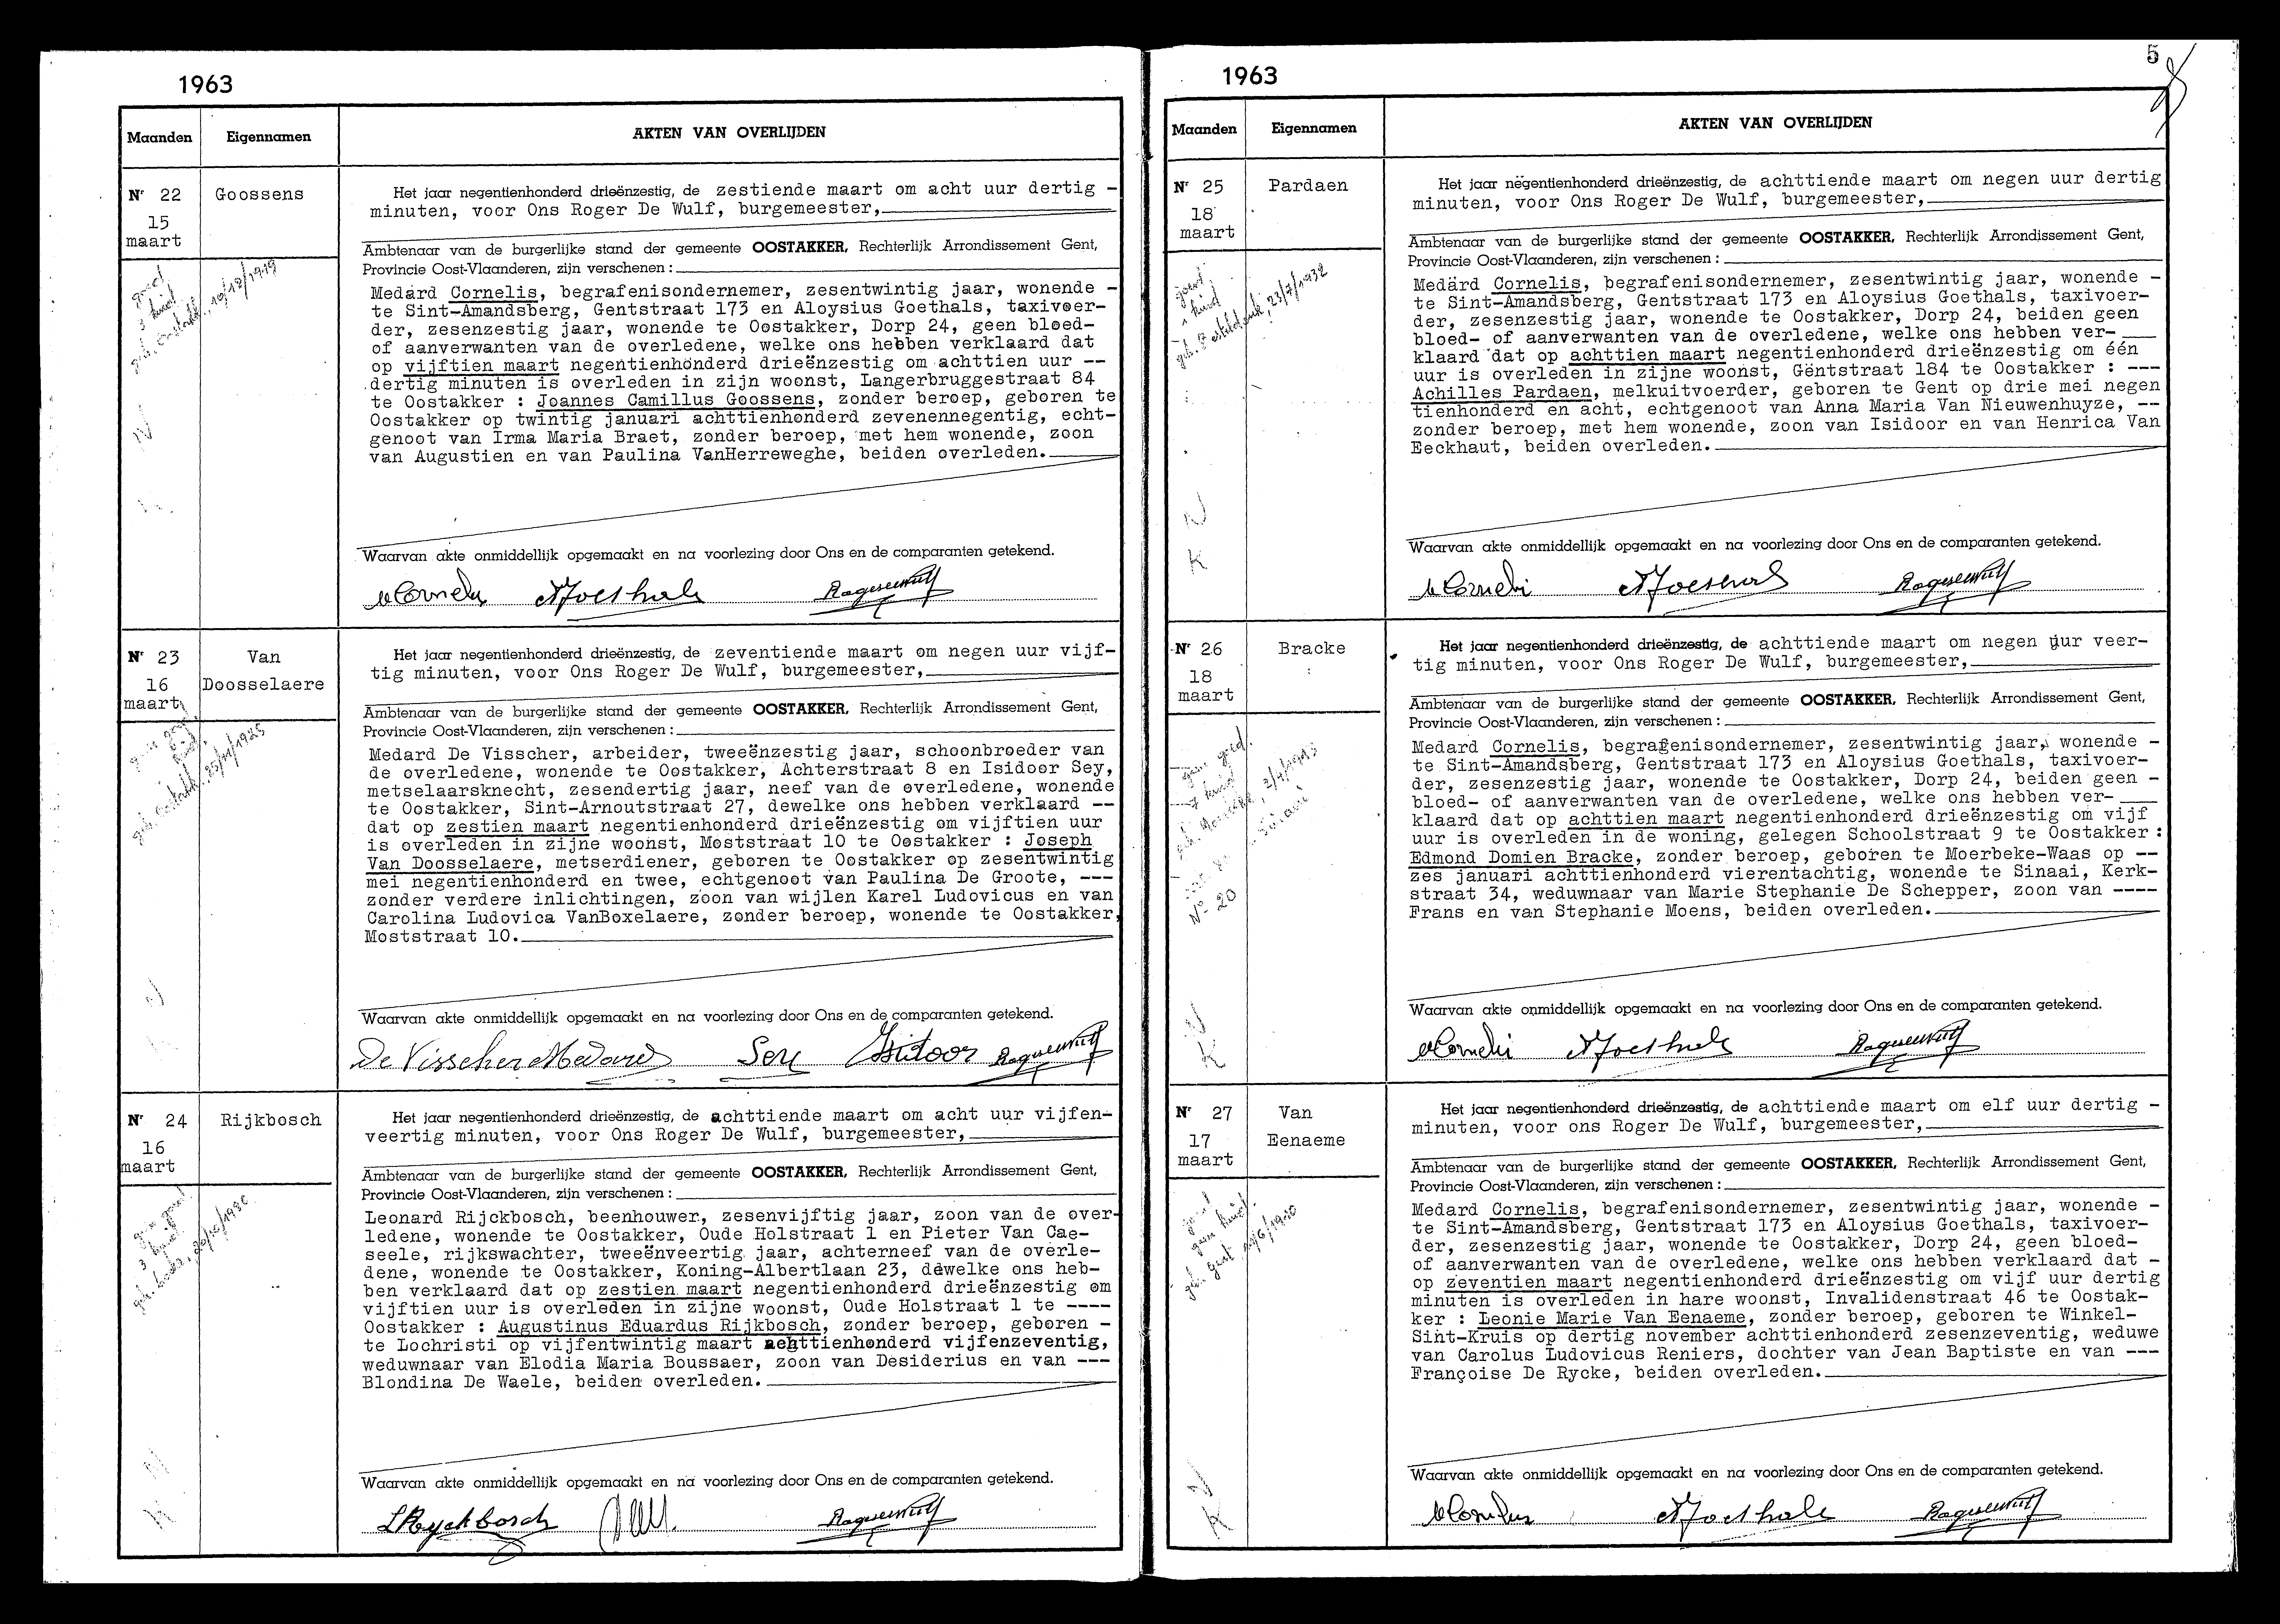 1963
Maanden Eigennamen AKTEN VAN OVERLIJDEN
Nr 22 Goossens
15
maart
10/12/1919
Het jaar negentienhonderd drieënzestig, de zestiende maart om acht uur dertig -
minuten, voor Ons Roger De Wulf, burgemeester,
Ambtenaar van de burgerlijke stand der gemeente OOSTAKKER, Rechterlijk Arrondissement Gent,
Provincie Oost-Vlaanderen, zijn verschenen :
Medard Cornelis, begrafenisondernemer, zesentwintig jaar, wonende -
te Sint-Amandsberg, Gentstraat 173 en Aloysius Goethals, taxivoer-
der, zesenzestig jaar, wonende te Oostakker, Dorp 24, geen bloed-
of aanverwanten van de overledene, welke ons hebben verklaard dat
op vijftien maart negentienhonderd drieënzestig om achttien uur --
dertig minuten is overleden in zijn woonst, Langerbruggestraat 84
te Oostakker : Joannes Camillus Goossens, zonder beroep, geboren te
Oostakker op twintig januari achttienhonderd zevenennegentig, echt-
genoot van Irma Maria Braet, zonder beroep, met hem wonende, zoon
van Augustien en van Paulina VanHerreweghe, beiden overleden.
Waarvan akte onmiddellijk opgemaakt en na voorlezing door Ons en de comparanten getekend.
Nr 23 Van
16 Doosselaere
maart
25/11/1925
Het jaar negentienhonderd drieënzestig, de zeventiende maart om negen uur vijf-
tig minuten, voor Ons Roger De Wulf, burgemeester,
Ambtenaar van de burgerlijke stand der gemeente OOSTAKKER, Rechterlijk Arrondissement Gent,
Provincie Oost-Vlaanderen, zijn verschenen :
Medard De Visscher, arbeider, tweeënzestig jaar, schoonbroeder van
de overledene, wonende te Oostakker, Achterstraat 8 en Isidoor Sey,
metselaarsknecht, zesendertig jaar, neef van de overledene, wonende
te Oostakker, Sint-Arnoutstraat 27, dewelke ons hebben verklaard --
dat op zestien maart negentienhonderd drieënzestig om vijftien uur
is overleden in zijne woonst, Moststraat 10 te Oostakker : Joseph
Van Doosselaere, metserdiener, geboren te Oostakker op zesentwintig
mei negentienhonderd en twee, echtgenoot van Paulina De Groote, ---
zonder verdere inlichtingen, zoon van wijlen Karel Ludovicus en van
Carolina Ludovica VanBoxelaere, zonder beroep, wonende te Oostakker,
Moststraat 10.
Waarvan akte onmiddellijk opgemaakt en na voorlezing door Ons en de comparanten getekend.
De Visscher Medard Sey Isidoor
Nr 24 Rijkbosch
16
maart
Het jaar negentienhonderd drieënzestig, de achttiende maart om acht uur vijfen-
veertig minuten, voor Ons Roger De Wulf, burgemeester,
Ambtenaar van de burgerlijke stand der gemeente OOSTAKKER, Rechterlijk Arrondissement Gent,
Provincie Oost-Vlaanderen, zijn verschenen :
Leonard Rijckbosch, beenhouwer, zesenvijftig jaar, zoon van de over-
ledene, wonende te Oostakker, Oude Holstraat 1 en Pieter Van Cae-
seele, rijkswachter, tweeënveertig jaar, achterneef van de overle-
dene, wonende te Oostakker, Koning-Albertlaan 23, dewelke ons heb-
ben verklaard dat op zestien maart negentienhonderd drieënzestig om
vijftien uur is overleden in zijne woonst, Oude Holstraat 1 te ----
Oostakker : Augustinus Eduardus Rijkbosch, zonder beroep, geboren -
te Lochristi op vijfentwintig maart achttienhonderd vijfenzeventig,
weduwnaar van Elodia Maria Boussaer, zoon van Desiderius en van ---
Blondina De Waele, beiden overleden.
Waarvan akte onmiddellijk opgemaakt en na voorlezing door Ons en de comparanten getekend.
LRyckbosch
1963
5
Maanden Eigennamen AKTEN VAN OVERLIJDEN
Nr 25 Pardaen
18
maart
23/7/1932
Het jaar negentienhonderd drieënzestig, de achttiende maart om negen uur dertig
minuten, voor Ons Roger De Wulf, burgemeester,
Ambtenaar van de burgerlijke stand der gemeente OOSTAKKER, Rechterlijk Arrondissement Gent,
Provincie Oost-Vlaanderen, zijn verschenen :
Medard Cornelis, begrafenisondernemer, zesentwintig jaar, wonende -
te Sint-Amandsberg, Gentstraat 173 en Aloysius Goethals, taxivoer-
der, zesenzestig jaar, wonende te Oostakker, Dorp 24, beiden geen
bloed- of aanverwanten van de overledene, welke ons hebben ver-
klaard dat op achttien maart negentienhonderd drieënzestig om één
uur is overleden in zijne woonst, Gentstraat 184 te Oostakker : ---
Achilles Pardaen, melkuitvoerder, geboren te Gent op drie mei negen
tienhonderd en acht, echtgenoot van Anna Maria Van Nieuwenhuyze, --
zonder beroep, met hem wonende, zoon van Isidoor en van Henrica Van
Eeckhaut, beiden overleden.
Waarvan akte onmiddellijk opgemaakt en na voorlezing door Ons en de comparanten getekend.
Nr 26 Bracke
18
maart
No 20
Het jaar negentienhonderd drieënzestig, de achttiende maart om negen uur veer-
tig minuten, voor Ons Roger De Wulf, burgemeester,
Ambtenaar van de burgerlijke stand der gemeente OOSTAKKER, Rechterlijk Arrondissement Gent,
Provincie Oost-Vlaanderen, zijn verschenen :
Medard Cornelis, begrafenisondernemer, zesentwintig jaar, wonende -
te Sint-Amandsberg, Gentstraat 173 en Aloysius Goethals, taxivoer-
der, zesenzestig jaar, wonende te Oostakker, Dorp 24, beiden geen -
bloed- of aanverwanten van de overledene, welke ons hebben ver-
klaard dat op achttien maart negentienhonderd drieënzestig om vijf
uur is overleden in de woning, gelegen Schoolstraat 9 te Oostakker :
Edmond Domien Bracke, zonder beroep, geboren te Moerbeke-Waas op --
zes januari achttienhonderd vierentachtig, wonende te Sinaai, Kerk-
straat 34, weduwnaar van Marie Stephanie De Schepper, zoon van ----
Frans en van Stephanie Moens, beiden overleden.
Waarvan akte onmiddellijk opgemaakt en na voorlezing door Ons en de comparanten getekend.
Nr 27 Van
17 Eenaeme
maart
Het jaar negentienhonderd drieënzestig, de achttiende maart om elf uur dertig -
minuten, voor ons Roger De Wulf, burgemeester,
Ambtenaar van de burgerlijke stand der gemeente OOSTAKKER, Rechterlijk Arrondissement Gent,
Provincie Oost-Vlaanderen, zijn verschenen :
Medard Cornelis, begrafenisondernemer, zesentwintig jaar, wonende -
te Sint-Amandsberg, Gentstraat 173 en Aloysius Goethals, taxivoer-
der, zesenzestig jaar, wonende te Oostakker, Dorp 24, geen bloed-
of aanverwanten van de overledene, welke ons hebben verklaard dat -
op zeventien maart negentienhonderd drieënzestig om vijf uur dertig
minuten is overleden in hare woonst, Invalidenstraat 46 te Oostak-
ker : Leonie Marie Van Eenaeme, zonder beroep, geboren te Winkel-
Sint-Kruis op dertig november achttienhonderd zesenzeventig, weduwe
van Carolus Ludovicus Reniers, dochter van Jean Baptiste en van ---
Françoise De Rycke, beiden overleden.
Waarvan akte onmiddellijk opgemaakt en na voorlezing door Ons en de comparanten getekend.